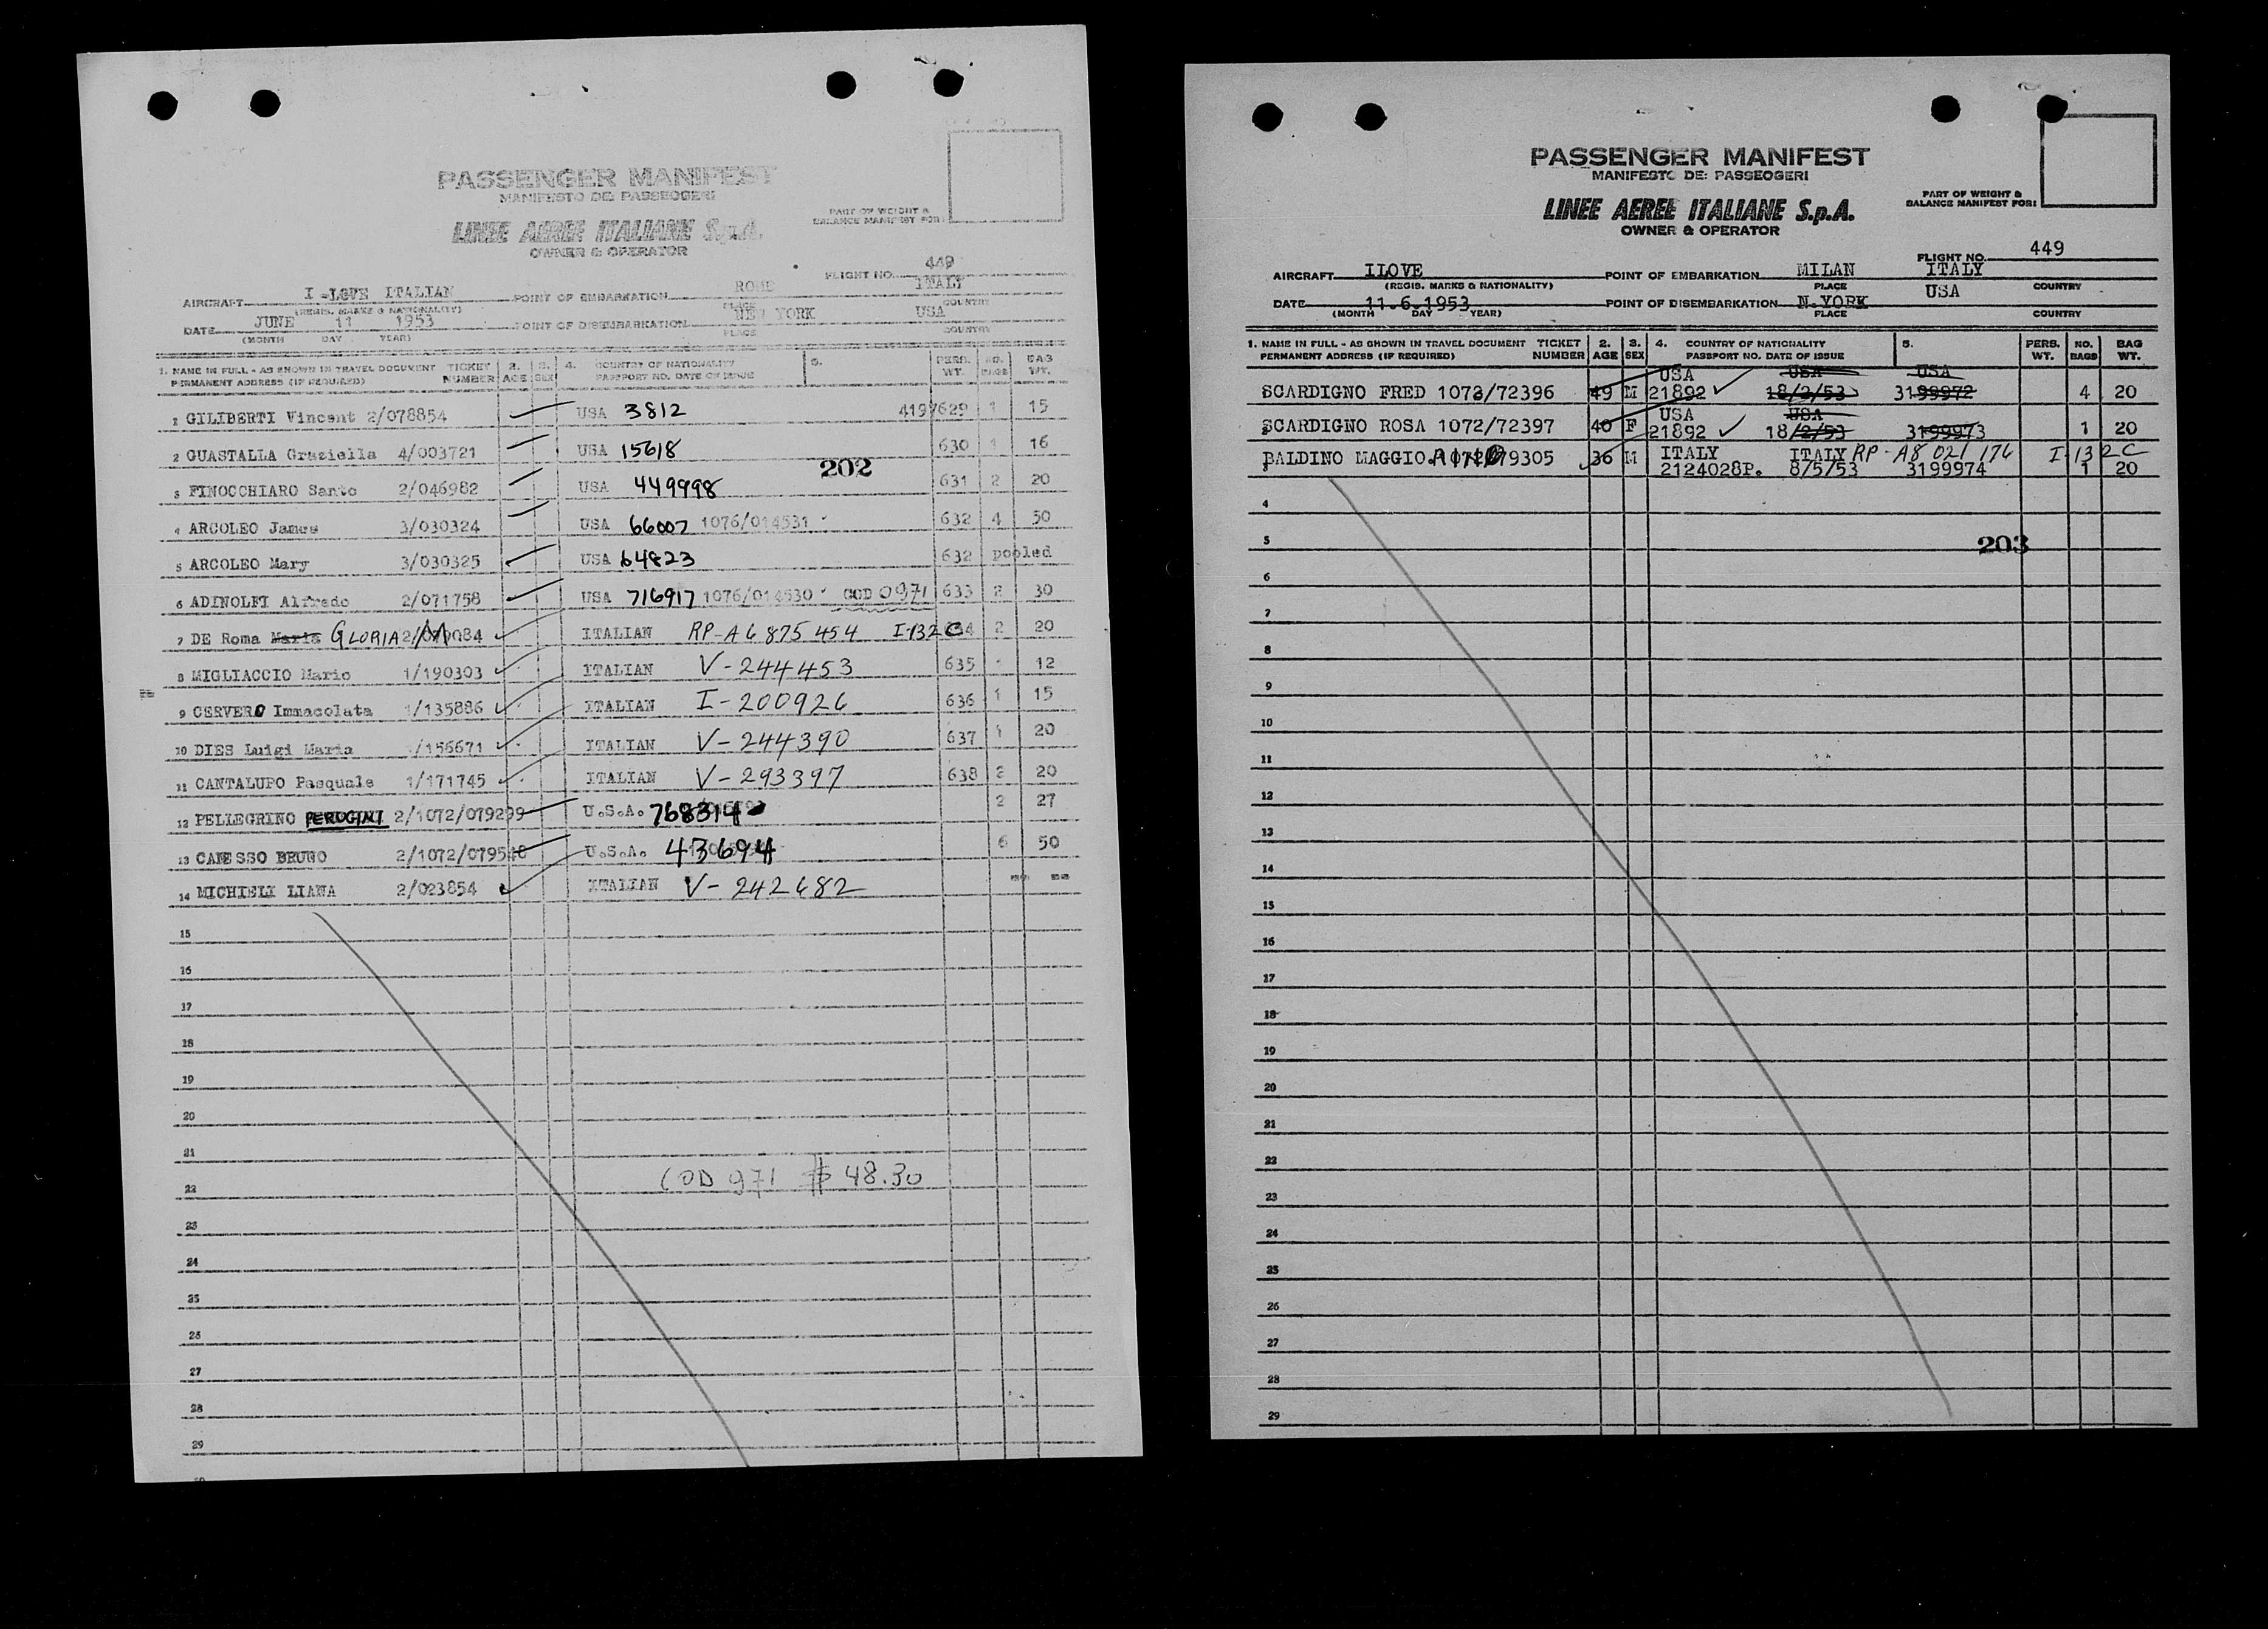 PASSENGER MANIFEST
MANIFESTO DEI PASSEGERI
LINEE AEREE ITALIANE S.p.A.
OWNER & OPERATOR
PART OF WEIGHT &
BALANCE MANIFEST FOR:
FLIGHT NO. 449
AIRCRAFT I-LOVE ITALIAN POINT OF EMBARKATION ROME ITALY
(REGIS. MARKS & NATIONALITY) PLACE COUNTRY
DATE JUNE 11 1953 POINT OF DISEMBARKATION NEW YORK USA
(MONTH DAY YEAR) PLACE COUNTRY
1. NAME IN FULL - AS SHOWN IN TRAVEL DOCUMENT TICKET 2. 3. 4. COUNTRY OF NATIONALITY 5. PERS. NO. BAG
PERMANENT ADDRESS (IF REQUIRED) NUMBER AGE SEX PASSPORT NO. DATE OF ISSUE WT. BAGS WT.
1 GILIBERTI Vincent 2/078854 USA 3812 4197629 1 15
2 GUASTALLA Graziella 4/003721 USA 15618 630 1 16
202
3 FINOCCHIARO Santo 2/046982 USA 449998 631 2 20
4 ARCOLEO James 3/030324 USA 66007 1076/014531 632 4 50
5 ARCOLEO Mary 3/030325 USA 64823 632 pooled
6 ADINOLFI Alfredo 2/071758 USA 716917 1076/014530 COD 0971 633 2 30
7 DE Roma Maria GLORIA M 2/079084 ITALIAN RP-A6 875 454 I-132 C 634 2 20
8 MIGLIACCIO Mario 1/190303 ITALIAN V-244453 635 12
9 CERVERO Immacolata 1/135886 ITALIAN I-200926 636 1 15
10 DIES Luigi Maria /156671 ITALIAN V-244390 637 1 20
11 CANTALUPO Pasquale 1/171745 ITALIAN V-293397 638 2 20
12 PELLEGRINO PERUGINI 2/1072/079299 U.S.A. 768314 2 27
13 CANESSO BRUNO 2/1072/0795 U.S.A. 43694 6 50
14 MICHIELI LIANA 2/023854 ITALIAN V-242682 -- --
15
16
17
18
19
20
21
COD 971 $ 48.30
22
23
24
25
26
27
28
29
PASSENGER MANIFEST
MANIFESTO DEI PASSEOGERI
LINEE AEREE ITALIANE S.p.A.
OWNER & OPERATOR
PART OF WEIGHT &
BALANCE MANIFEST FOR:
FLIGHT NO. 449
AIRCRAFT ILOVE POINT OF EMBARKATION MILAN ITALY
(REGIS. MARKS & NATIONALITY) PLACE COUNTRY
DATE 11.6.1953 POINT OF DISEMBARKATION N.YORK USA
(MONTH DAY YEAR) PLACE COUNTRY
1. NAME IN FULL - AS SHOWN IN TRAVEL DOCUMENT TICKET 2. 3. 4. COUNTRY OF NATIONALITY 5. PERS. NO. BAG
PERMANENT ADDRESS (IF REQUIRED) NUMBER AGE SEX PASSPORT NO. DATE OF ISSUE WT. BAGS WT.
USA USA USA
SCARDIGNO FRED 1072/72396 49 M 21892 18/2/53 3199972 4 20
USA USA
SCARDIGNO ROSA 1072/72397 40 F 21892 18/2/53 3199973 1 20
ITALY ITALY RP-A8 021 176 I-132 C
BALDINO MAGGIO 79305 36 M 2124028P. 8/5/53 3199974 1 20
4
203
5
6
7
8
9
10
11
12
13
14
15
16
17
18
19
20
21
22
23
24
25
26
27
28
29